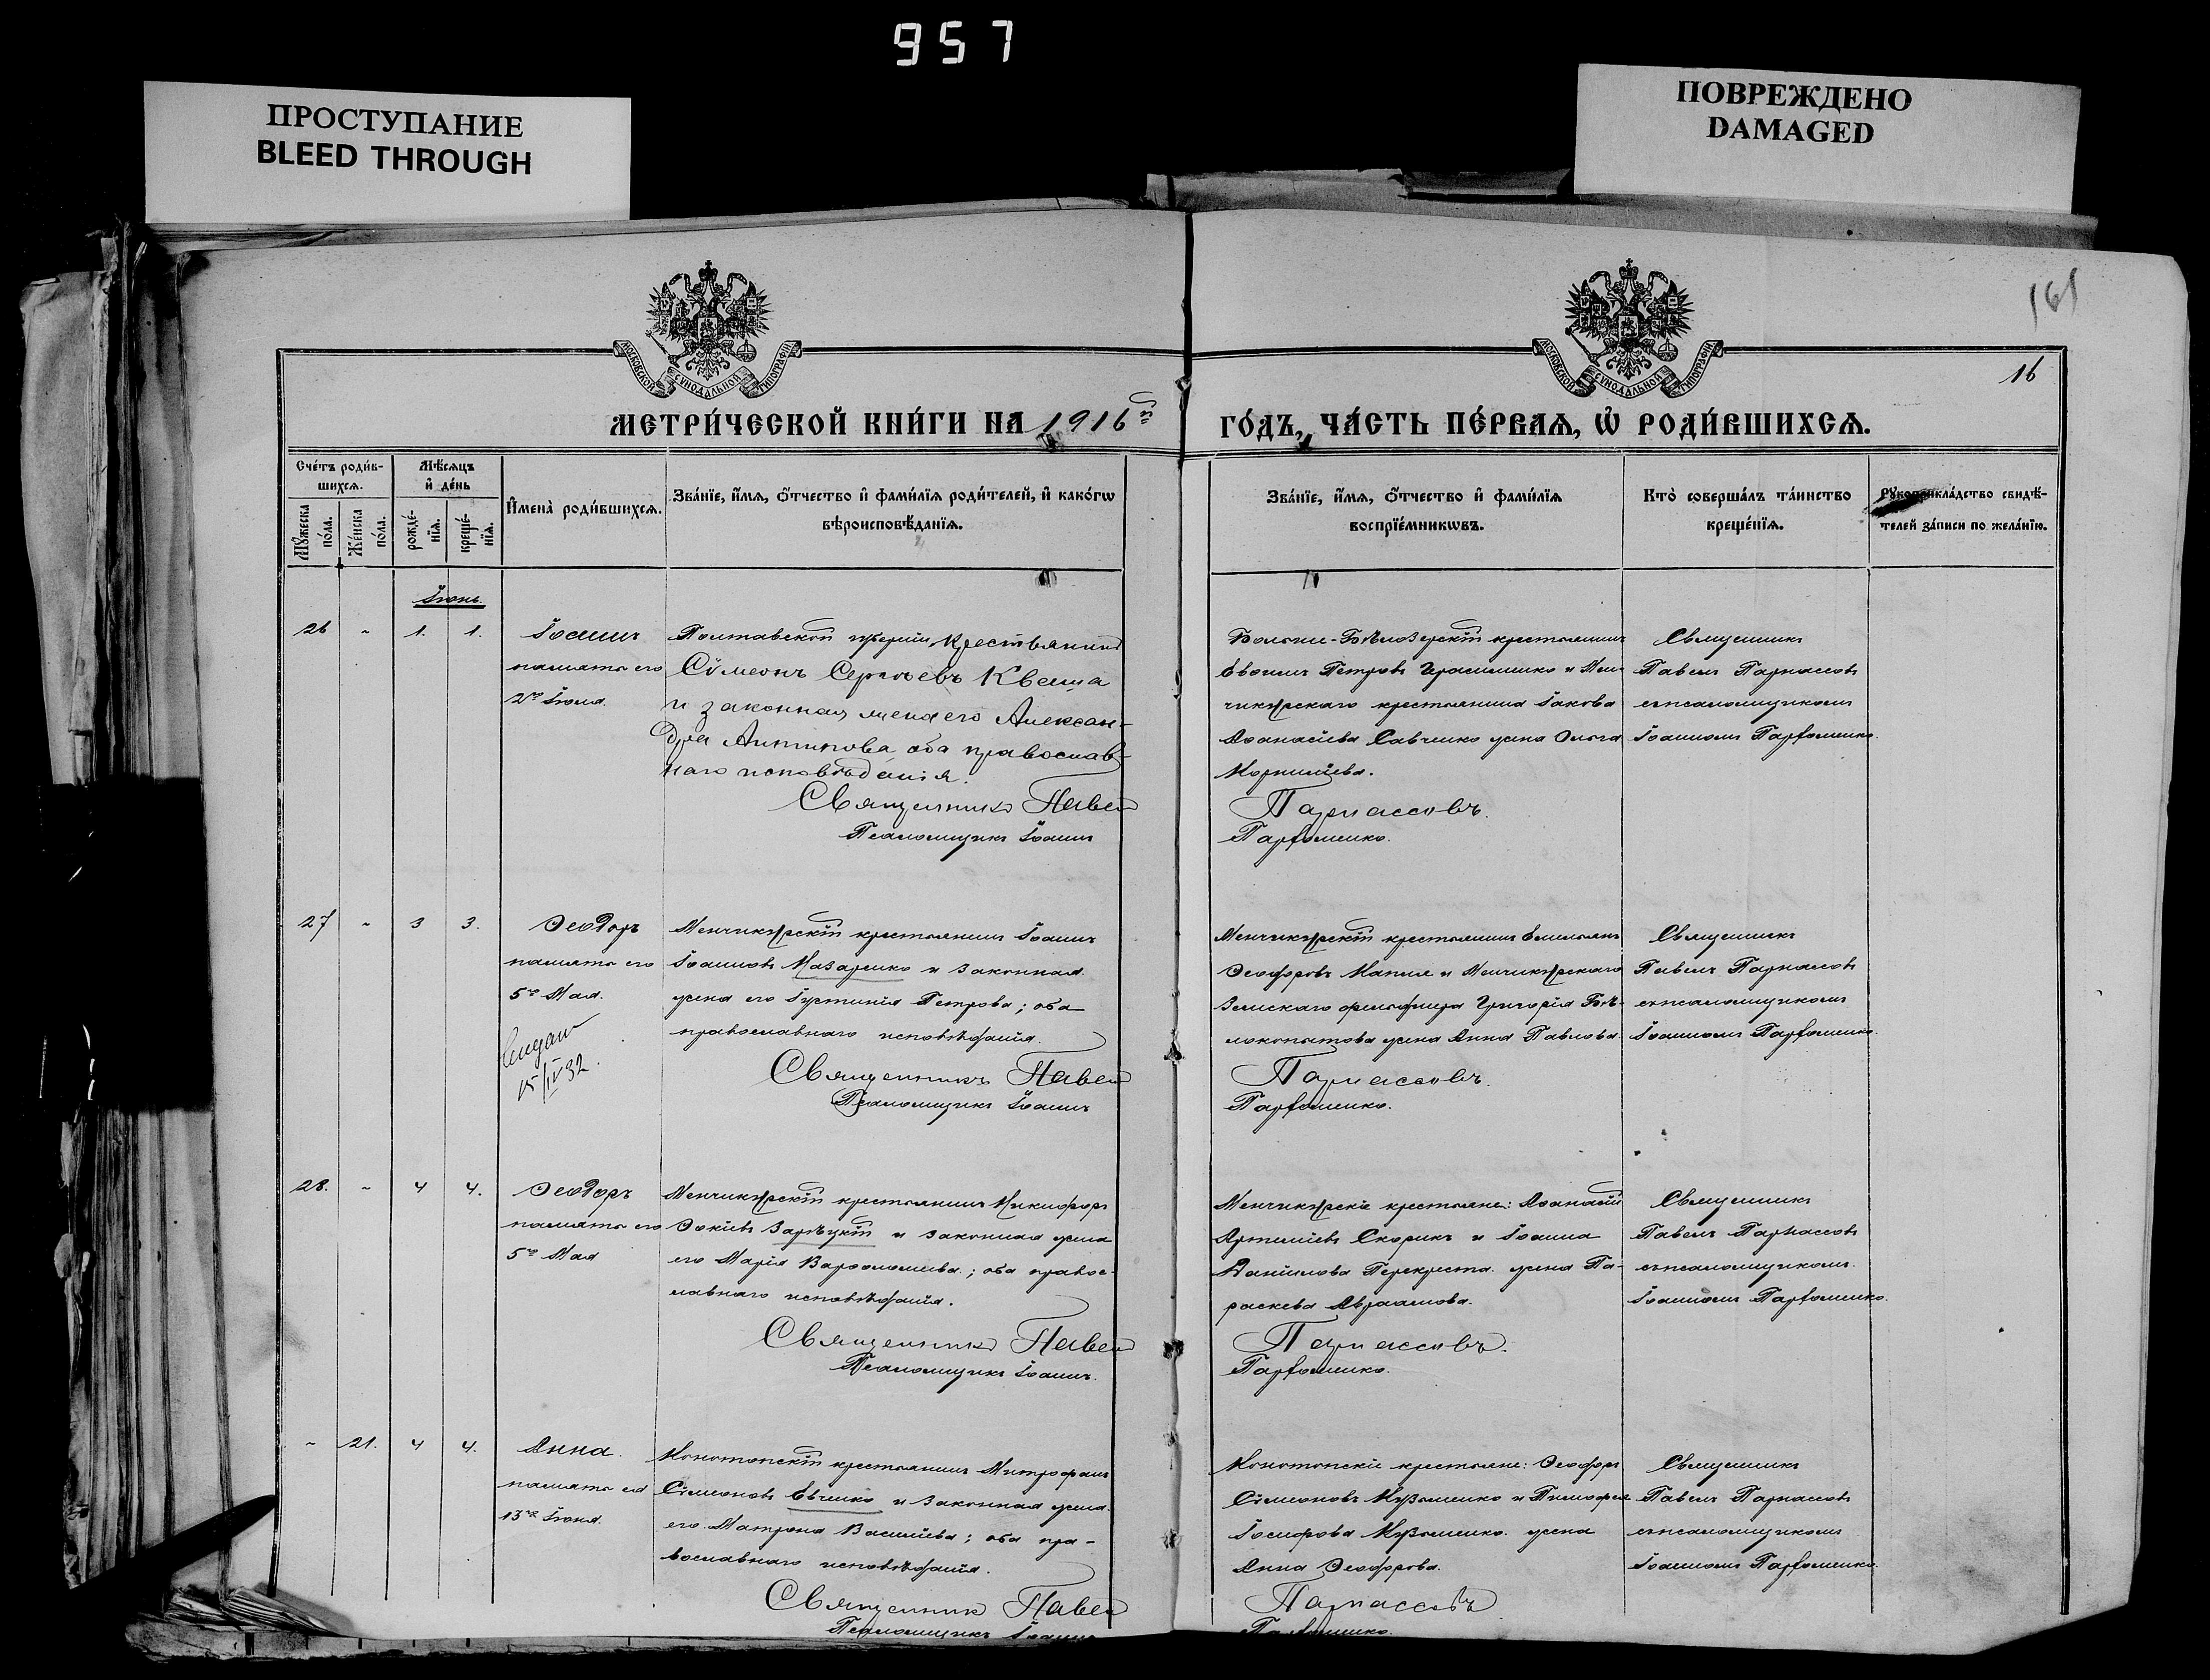 957
ПРОСТУПАНИЕ
BLEED THROUGH
ПОВРЕЖДЕНО
DAMAGED
161
16
МОСКОВСКОЙ СѴНОДАЛЬНОЙ ТИПОГРАФІИ
МОСКОВСКОЙ СѴНОДАЛЬНОЙ ТИПОГРАФІИ
МЕТРИ́ЧЕСКОЙ КНИ́ГИ НА 1916й
ГО́ДЪ, ЧА́СТЬ ПЕ́РВАѦ, Ѽ РОДИ́ВШИХСѦ.
Сче́тъ роди́в-
шихсѧ.
Мѣ́сѧцъ
и де́нь
Мꙋ́жеска
по́ла.
Же́нска
по́ла.
рожде́-
нїѧ.
креще́-
нїѧ.
И҆мена̀ роди́вшихсѧ.
Зва́нїе, и҆́мѧ, ѻ҆́тчество и҆ фами́лїѧ роди́телей, и҆ како́гѡ
вѣроисповѣ́данїѧ.
Зва́нїе, и҆́мѧ, ѻ҆́тчество и҆ фами́лїѧ
воспрїе́мникѡвъ.
Кто̀ соверша́лъ та́инство
креще́нїѧ.
Рꙋкоприкла́дство свидѣ́-
телей за́писи по жела́нїю.
Іюнь.
26 „ 1. 1. Іоаннъ
память его
2го Іюня.
Полтавской губерніи, крестьянинъ
Сѵмеонъ Сергѣевъ Квеша
и законная жена его Алексан-
дра Антипова оба православ-
наго исповѣданія.
Священникъ Павел
Псаломщикъ Іоаннъ
Больше-Бѣлозерскій крестьянинъ
Евѳимъ Петровъ Герасименко и Мен-
чикурскаго крестьянина Іакова
Аѳанасіева Савченко жена Ольга
Корниліева.
Парнассовъ.
Парѳоменко.
Священникъ
Павелъ Парнассовъ
съ псаломщикомъ
Іоанномъ Парѳоменко.
27 „ 3 3. Ѳеодоръ
память его
5го Мая.
15/IV 32.
Менчикурскій крестьянинъ Іоаннъ
Іоанновъ Назаренко и законная
жена его Іустинія Петрова; оба
православнаго исповѣданія.
Священникъ Павел
Псаломщикъ Іоаннъ
Менчикурскій крестьянинъ Емельянъ
Ѳеодоровъ Капля и Менчикурскаго
Земскаго фельдшера Григорія Бѣ-
локопытова жена Анна Павлова.
Парнассовъ.
Парѳоменко.
Священникъ
Павелъ Парнассовъ
съ псаломщикомъ
Іоанномъ Парѳоменко.
28. „ 4 4. Ѳеодоръ
память его
5го Мая
Менчикурскій крестьянинъ Никифоръ
Ѳокіевъ Зарѣцкій и законная жена
его Марія Варѳоломеева; оба правос-
лавнаго исповѣданія.
Священникъ Павел
Псаломщикъ Іоаннъ.
Менчикурскіе крестьяне: Аѳанасій
Артеміевъ Скорикъ и Іоанна
Даніилова Перекреста жена Па-
раскева Авраамова.
Парнассовъ.
Парѳоменко.
Священникъ
Павелъ Парнассовъ
съ псаломщикомъ
Іоанномъ Парѳоменко.
„ 21. 4 4. Анна.
память ея
13го Іюня.
Конотопскій крестьянинъ Митрофанъ
Сѵмеоновъ Евченко и законная жена
его Матрона Василіева; оба пра-
вославнаго исповѣданія.
Священникъ Павел
Псаломщикъ Іоаннъ
Конотопскіе крестьяне: Ѳеодоръ
Сѵмеоновъ Кузьменко и Тимоѳея
Іосифова Кузьменко жена
Анна Ѳеодорова.
Парнассовъ
Парѳоменко.
Священникъ
Павелъ Парнассовъ
съ псаломщикомъ
Іоанномъ Парѳоменко.